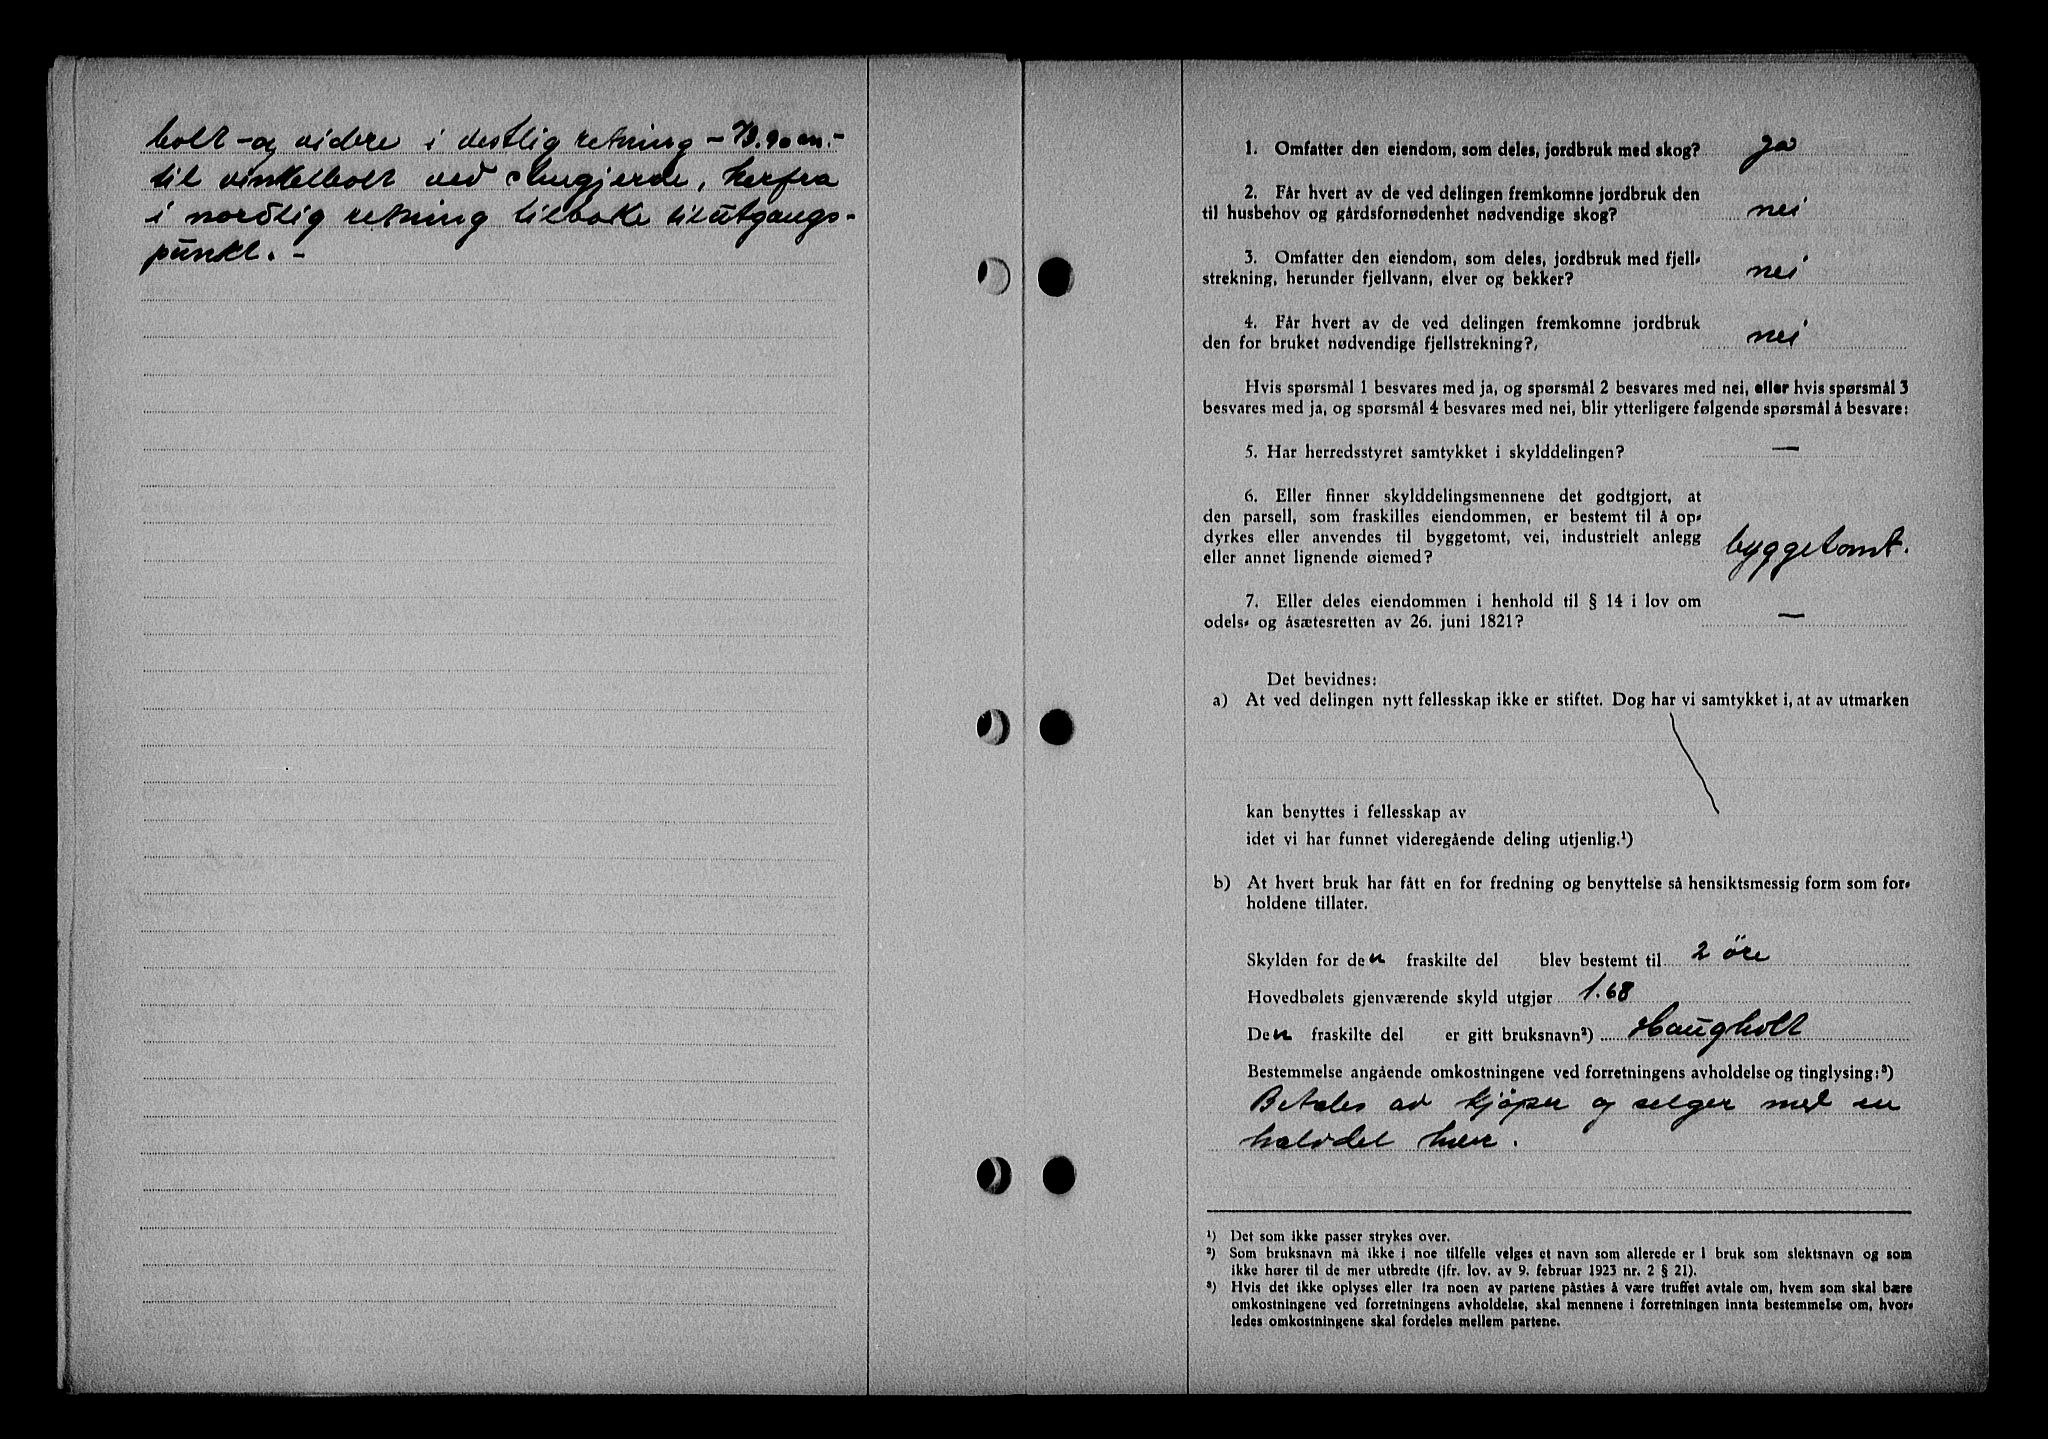 bolt - og videre i vestlig retning - 73.90 m. -
til vinkelbolt ved skigjerde, herfra
i nordlig retning tilbake til utgangs-
punkt. -
1. Omfatter den eiendom, som deles, jordbruk med skog? ja
2. Får hvert av de ved delingen fremkomne jordbruk den
til husbehov og gårdsfornødenhet nødvendige skog? nei
3. Omfatter den eiendom, som deles, jordbruk med fjell-
strekning, herunder fjellvann, elver og bekker? nei
4. Får hvert av de ved delingen fremkomne jordbruk
den for bruket nødvendige fjellstrekning?, nei
Hvis spørsmål 1 besvares med ja, og spørsmål 2 besvares med nei, eller hvis spørsmål 3
besvares med ja, og spørsmål 4 besvares med nei, blir ytterligere følgende spørsmål å besvare:
5. Har herredsstyret samtykket i skylddelingen? —
6. Eller finner skylddelingsmennene det godtgjort, at
den parsell, som fraskilles eiendommen, er bestemt til å op-
dyrkes eller anvendes til byggetomt, vei, industrielt anlegg
eller annet lignende øiemed? byggetomt.
7. Eller deles eiendommen i henhold til § 14 i lov om
odels- og åsætesretten av 26. juni 1821? —
Det bevidnes:
a) At ved delingen nytt fellesskap ikke er stiftet. Dog har vi samtykket i, at av utmarken
kan benyttes i fellesskap av
idet vi har funnet videregående deling utjenlig.¹)
b) At hvert bruk har fått en for fredning og benyttelse så hensiktsmessig form som for-
holdene tillater.
Skylden for den fraskilte del blev bestemt til 2 öre
Hovedbølets gjenværende skyld utgjør 1.68
Den fraskilte del er gitt bruksnavn²) Haugholt
Bestemmelse angående omkostningene ved forretningens avholdelse og tinglysing:³)
Betales av kjöper og selger med en
halvdel hver.
¹) Det som ikke passer strykes over.
²) Som bruksnavn må ikke i noe tilfelle velges et navn som allerede er i bruk som slektsnavn og som
ikke hører til de mer utbredte (jfr. lov. av 9. februar 1923 nr. 2 § 21).
³) Hvis det ikke oplyses eller fra noen av partene påståes å være truffet avtale om, hvem som skal bære
omkostningene ved forretningens avholdelse, skal mennene i forretningen innta bestemmelse om, hvor-
ledes omkostningene skal fordeles mellem partene.